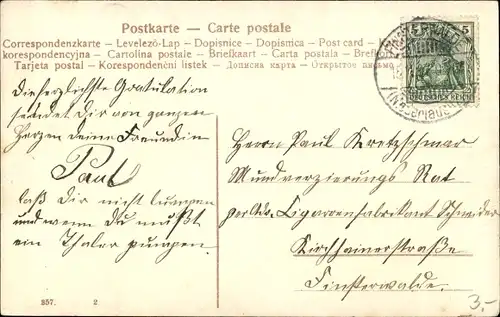 Postkarte — Carte postale
Correspondenzkarte - Levelező-Lap - Dopisnice - Dopisnica - Post card -
korespondencyjna - Cartolina postale - Briefkaart - Carta postala - Brefkort
Tarjeta postal - Korespondenční listek - Дописна карта - Открытое письмо
5 5
DEUTSCHES REICH
(Niederlausitz)
die herzlichste Gratulation
sendet Dir von ganzem
Herzen deine Freundin
Paul
laß dir nicht lumpen
und wenn du mußt
ein Thaler pumpen.
Herrn Paul Kretzschmar
Mundverzierungs Rat
per Adr. Cigarrenfabrikant Schneider
Kirchhainerstraße
Finsterwalde.
357. 2
3,-